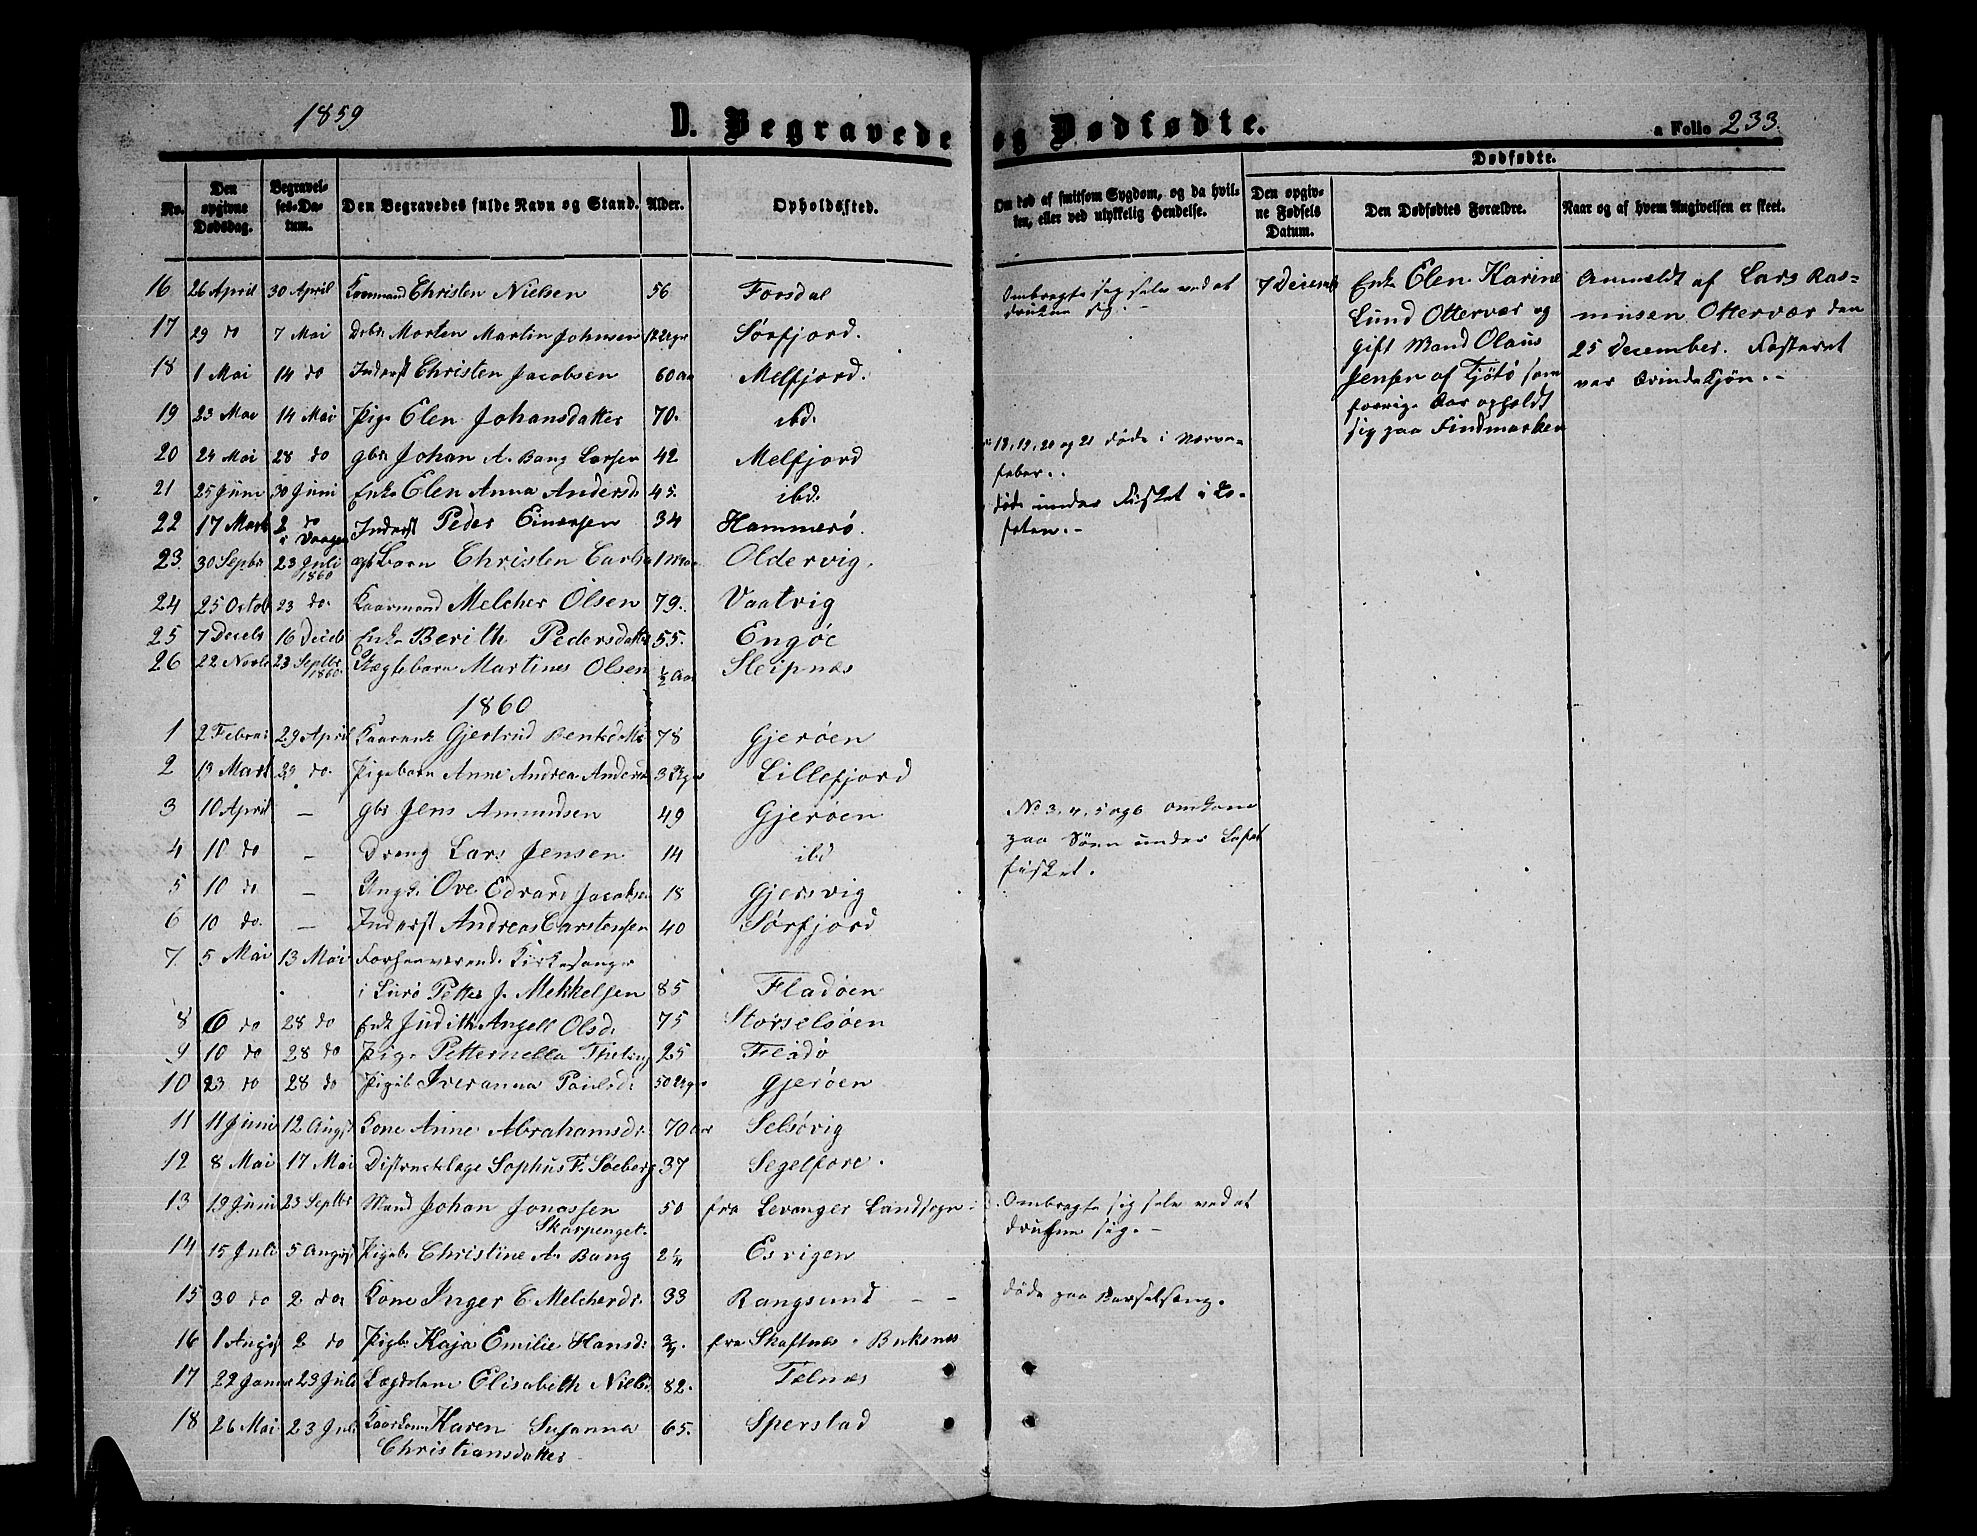 1859 D. Begravede og Dødfødte. a Folio 233.
No. Den opgivne Dødsdag. Begravelses-Datum. Den Begravedes fulde Navn og Stand. Alder. Opholdssted. Om død af smitsom Sygdom, og da hvilken, eller ved ulykkelig Hendelse. Dødfødte. Den opgivne Fødsels Datum. Den Dødfødtes Forældre. Naar og af hvem Angivelsen er skeet.
16 26 April 30 April Kaarmand Christen Nielsen 56 Forsdal Ombragte sig selv ved at drukne sig. -
17 29 do 7 Mai Morten Martin Johnsen Sörfjord.
18 1 Mai 14 do Inderst Christen Jacobsen 60 Aar Melfjord.
19 23 Mai 14 Mai Pige Elen Johansdatter 70. ibd.
20 24 Mai 28 do gbr Johan A. Bang Larsen 42 Melfjord
21 25 Juni 30 Juni Enke Elen Anna Andersd. 45. ibd.
22 17 Mart 2 do Vaagen Inderst Peder Einersen 34 Hammerö
18, 19, 20 og 21 døde i Nerve-
feber..
døde under Fisket i Lo-
foten. -
23. 30 Septbr 23 Juli 1860 gbbarn Christen 1 Oldervig.
24 25 Octob 23 do. Kaarmand Melcher Olsen 79. Vaatvig
25 7 Decebr 16 Deceb Enke Berith Pedersdatter 55. Engöe
26 22 Novbr 23 Septbr 1860. Lægdebarn Martines Olsen ½ Aar Sleipnæs
7 Decemb Enke Elen Karine
Lund Ottervær og
gift Mand Olaus
Jensen af Tjötö som
forrige Aar opholdt
sig paa Findmarken
Anmeldt af Lars Ras-
musen Ottervær den
25 December. Fosteret
var Qvindekjön. -
1860
1 2 Februar 29 April Gjertrud Bentsdatter 78 Gjeröen
2 13 Mart 29 do. Pigebarn Anne Andrea Andersd 3 Uger Lillefjord
3 10 April — gbr Jens Amundsen 49 Gjeröen
4 10 do — Dreng Lars Jensen 14 ibd
5 10 do — Ungk. Ove Edvard Jacobsen 18 Gjersvig
6 10 do. — Inderst Andreas Carstensen 40 Sörfjord
No 3, 4, 5 og 6 omkom
paa Söen under Lofot
fisket.
7. 5 Mai 13 Mai Forhenværende Kirkesanger
i Lurö Petter J. Mekkelsen 85 Fladöen
8 6 do 28 do Enke Judith Angell Olsd. 75 Storselsöen
9 10 do 28 do Pige Petternella 25 Fladö
10 23 do 28 do Pigeb. Iveranna Paulsd. 50 Uger Gjeröen
11 11 Juni 12 Augst Kone Anne Abrahamsdr. 70 Aar Selsövig
12 8 Mai 17 Mai Districtslæge Sophus F. Soeberg 37 Segelfore.
13 19 Juni 23 Septbr Mand Johan Jonassen Skarpenget. 50 fra Levanger Landsogn Ombragte sig selv ved at drukne sig. -
14 15 Juli 5 Augst Pigeb. Christine A. Bang 2¼ Esvigen
15 30 do 2 do Kone Inger E. Melcherdr. 33 Rangsund - - döde paa Barselseng.
16 1 Augst 2 do Pigb. Kaja Emilie Hansd. fra Skaftnæs Buksnæs
17 22 Januar 23 Juli Elisabeth Nielsd 82. Telnæs
18 26 Mai 23 Juli Karen Susanna 65. Sperstad
Christiansdatter